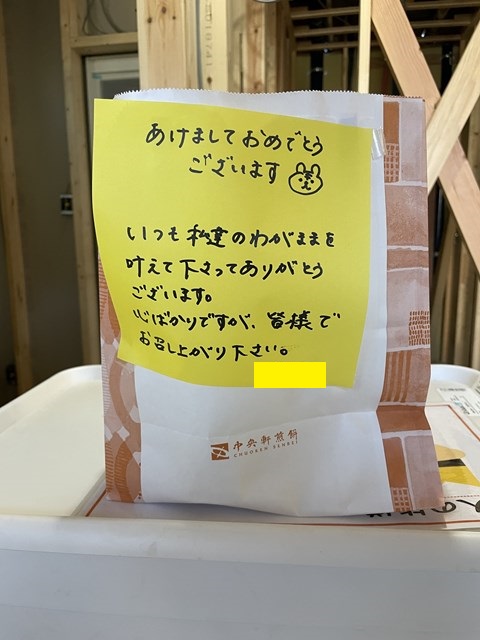 あけましておめでとう
ございます
いつも私達のわがままを
叶えて下さってありがとう
ございます。
心ばかりですが、皆様で
お召し上がり下さい。
中央軒煎餅
CHUOKEN SENBEI